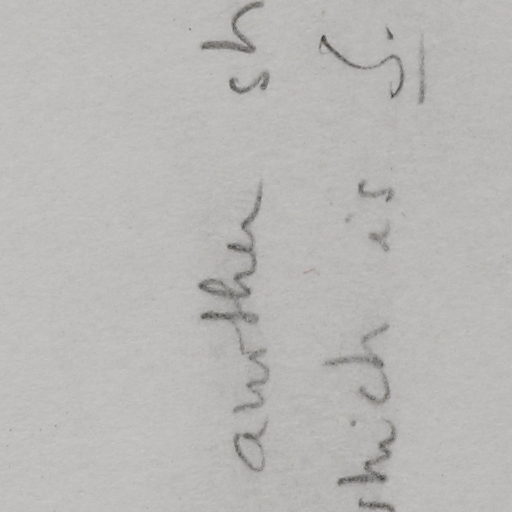 another sh
which is